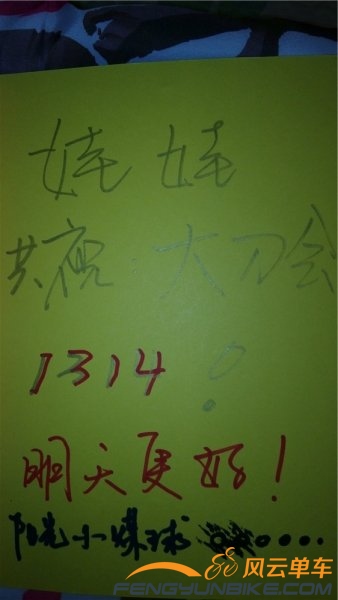 共祝：大刀会
1314！
明天更好！
阳光小煤球 。。。。
风云单车
FENGYUNBIKE.COM